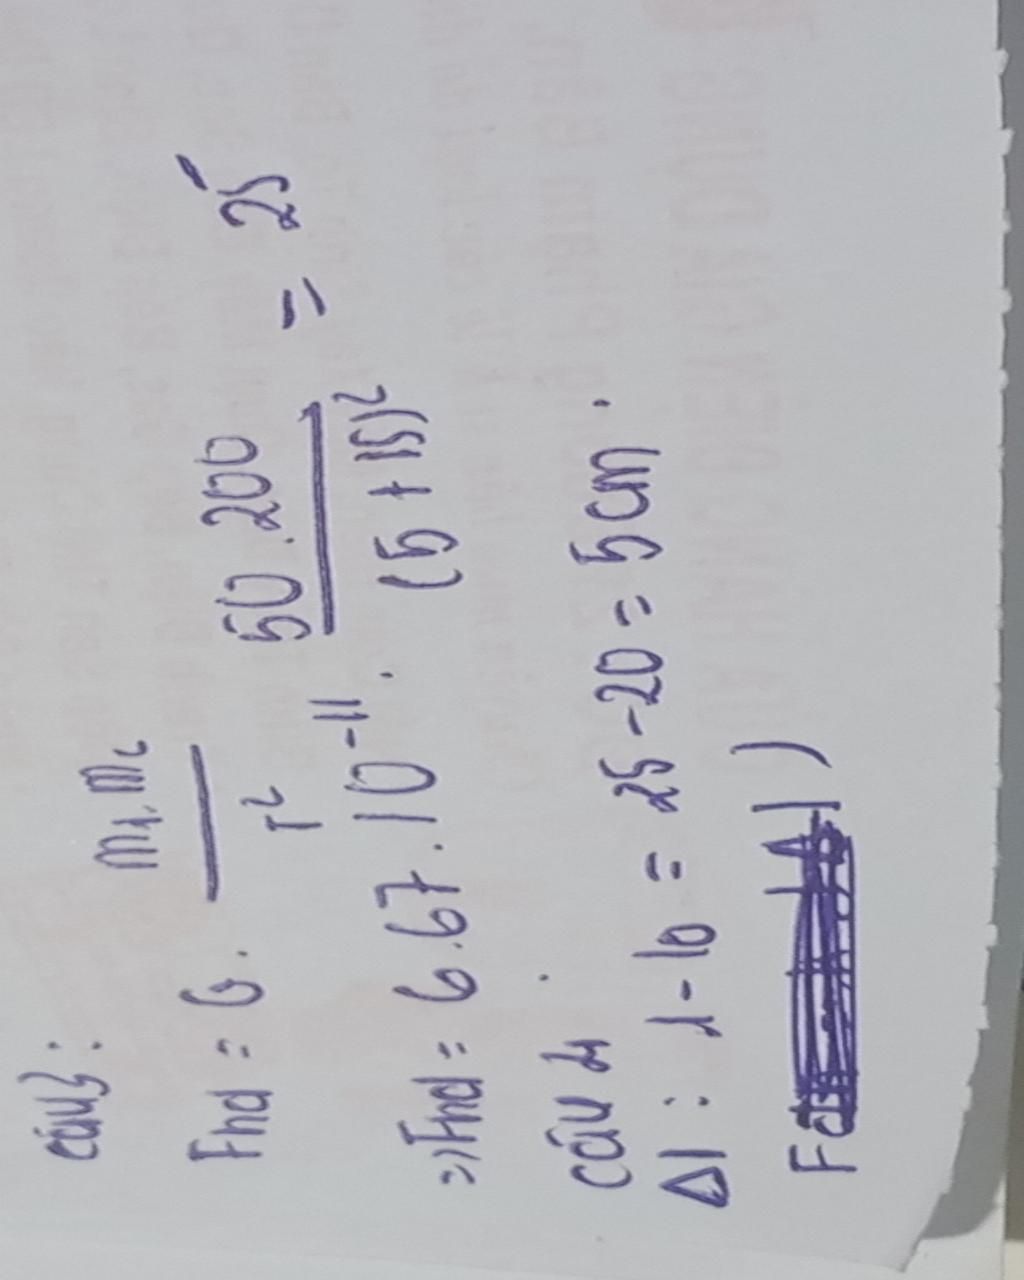 câu 3:
Fhd = G. m1.m2 / r²
=> Fhd = 6.67.10⁻¹¹. 50.200 / (5 + 15)² = 25
câu 4
Δl: l - l0 = 25 - 20 = 5 cm.
F